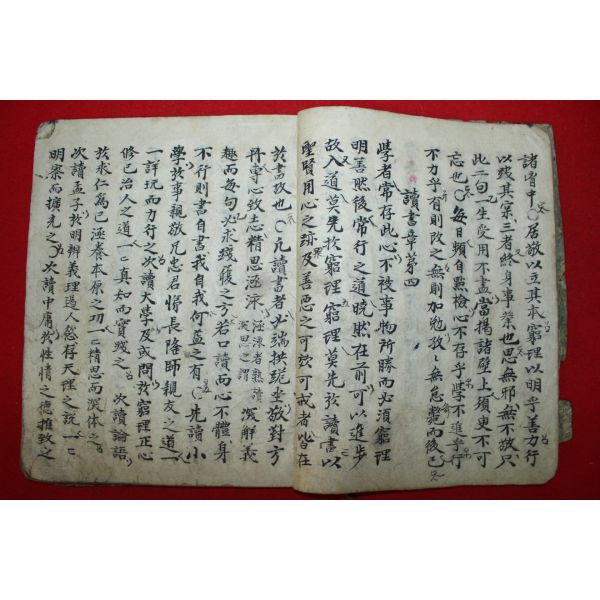 諸胷中○居敬以立其本窮理以明乎善力行
以踐其實三者終身事業也思無邪無不敬只
此二句一生受用不盡當揭諸壁上須更不可
忘也○每日頻自點檢心不存乎學不進乎行
不力乎有則改之無則加勉孜〻無怠斃而後已
讀書章第四
學者常存此心不被事物所勝而必須窮理
明善然後常行之道曉然在前可以進步
故入道莫先於窮理窮理莫先於讀書以
聖賢用心之跡及善惡之可效可戒者皆在
於書故也○凡讀書者必端拱跪坐敬對方
冊專心致志精思涵泳涵泳者熟讀深思之謂深解義
趣而每句必求踐履之方若口讀而心不體身
不行則書自書我自我何益之有○先讀小
學於事親敬兄忠君悌長隆師親友之道一
一詳玩而力行之次讀大學及或問於窮理正心
修己治人之道一〻真知而實踐之 次讀論語
於求仁爲己涵養本原之功一〻精思而深体之
次讀孟子於明辨義理遏人慾存天理之說一〻
明察而擴充之 次讀中庸於性情之德推致之